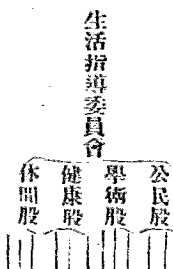 生活指導委員會
公民股
學術股
健康股
休閒股